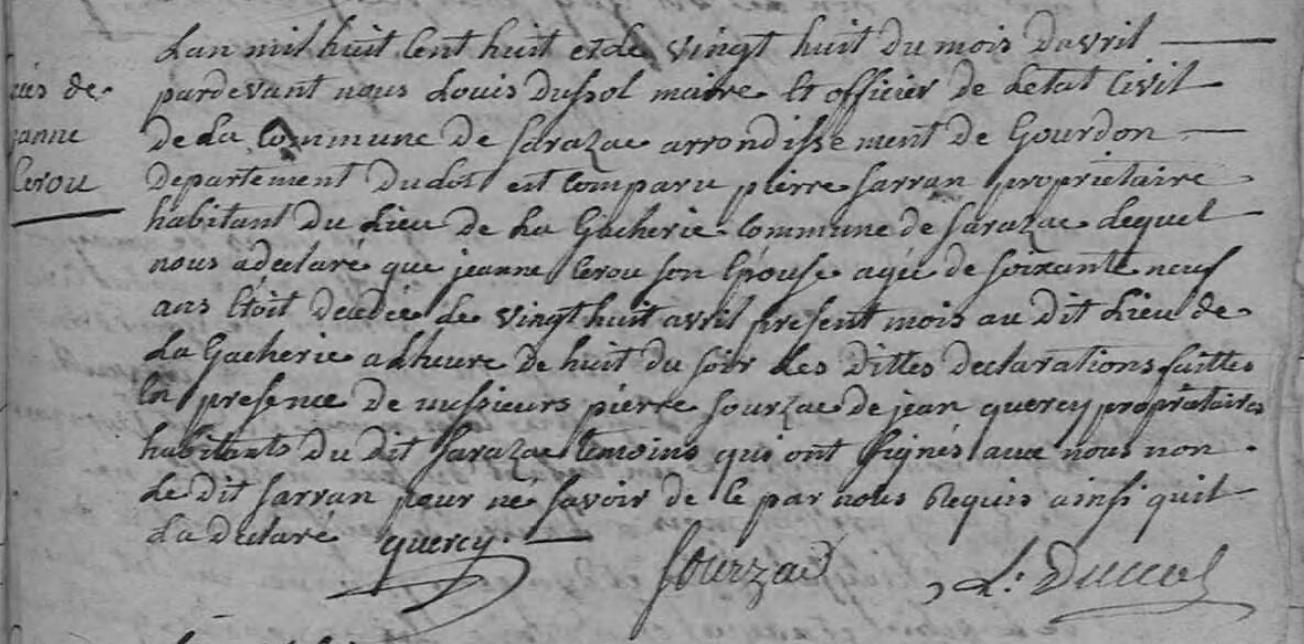 Lan mil huit Cent huit et le vingt huit du mois Davril
pardevant nous Louis Dussol maire et officier de Letat Civil
ués de
De La Commune de Sarazac arrondissement de Gourdon
janne
Departement Du Lot est Comparu pierre Sarran propriétaire
Cerou
habitant Du Lieu de La Gacherie Commune de Sarazac Lequel
nous a declaré que jeanne Cerou son Epouse agée de soixante neuf
ans Etoit decedée Le vingt huit avril present mois au Dit Lieu de
La Gacherie a Lheure de huit Du soir Les Dittes declarations faittes
En presence De messieurs pierre Sourzac de jean quercy propriétaires
habitants Du Dit Sarazac temoins qui ont signés avec nous non
Le Dit Sarran pour ne savoir de ce par nous Requis ainsi quil
La Declaré quercy
Sourzac L. Dussol